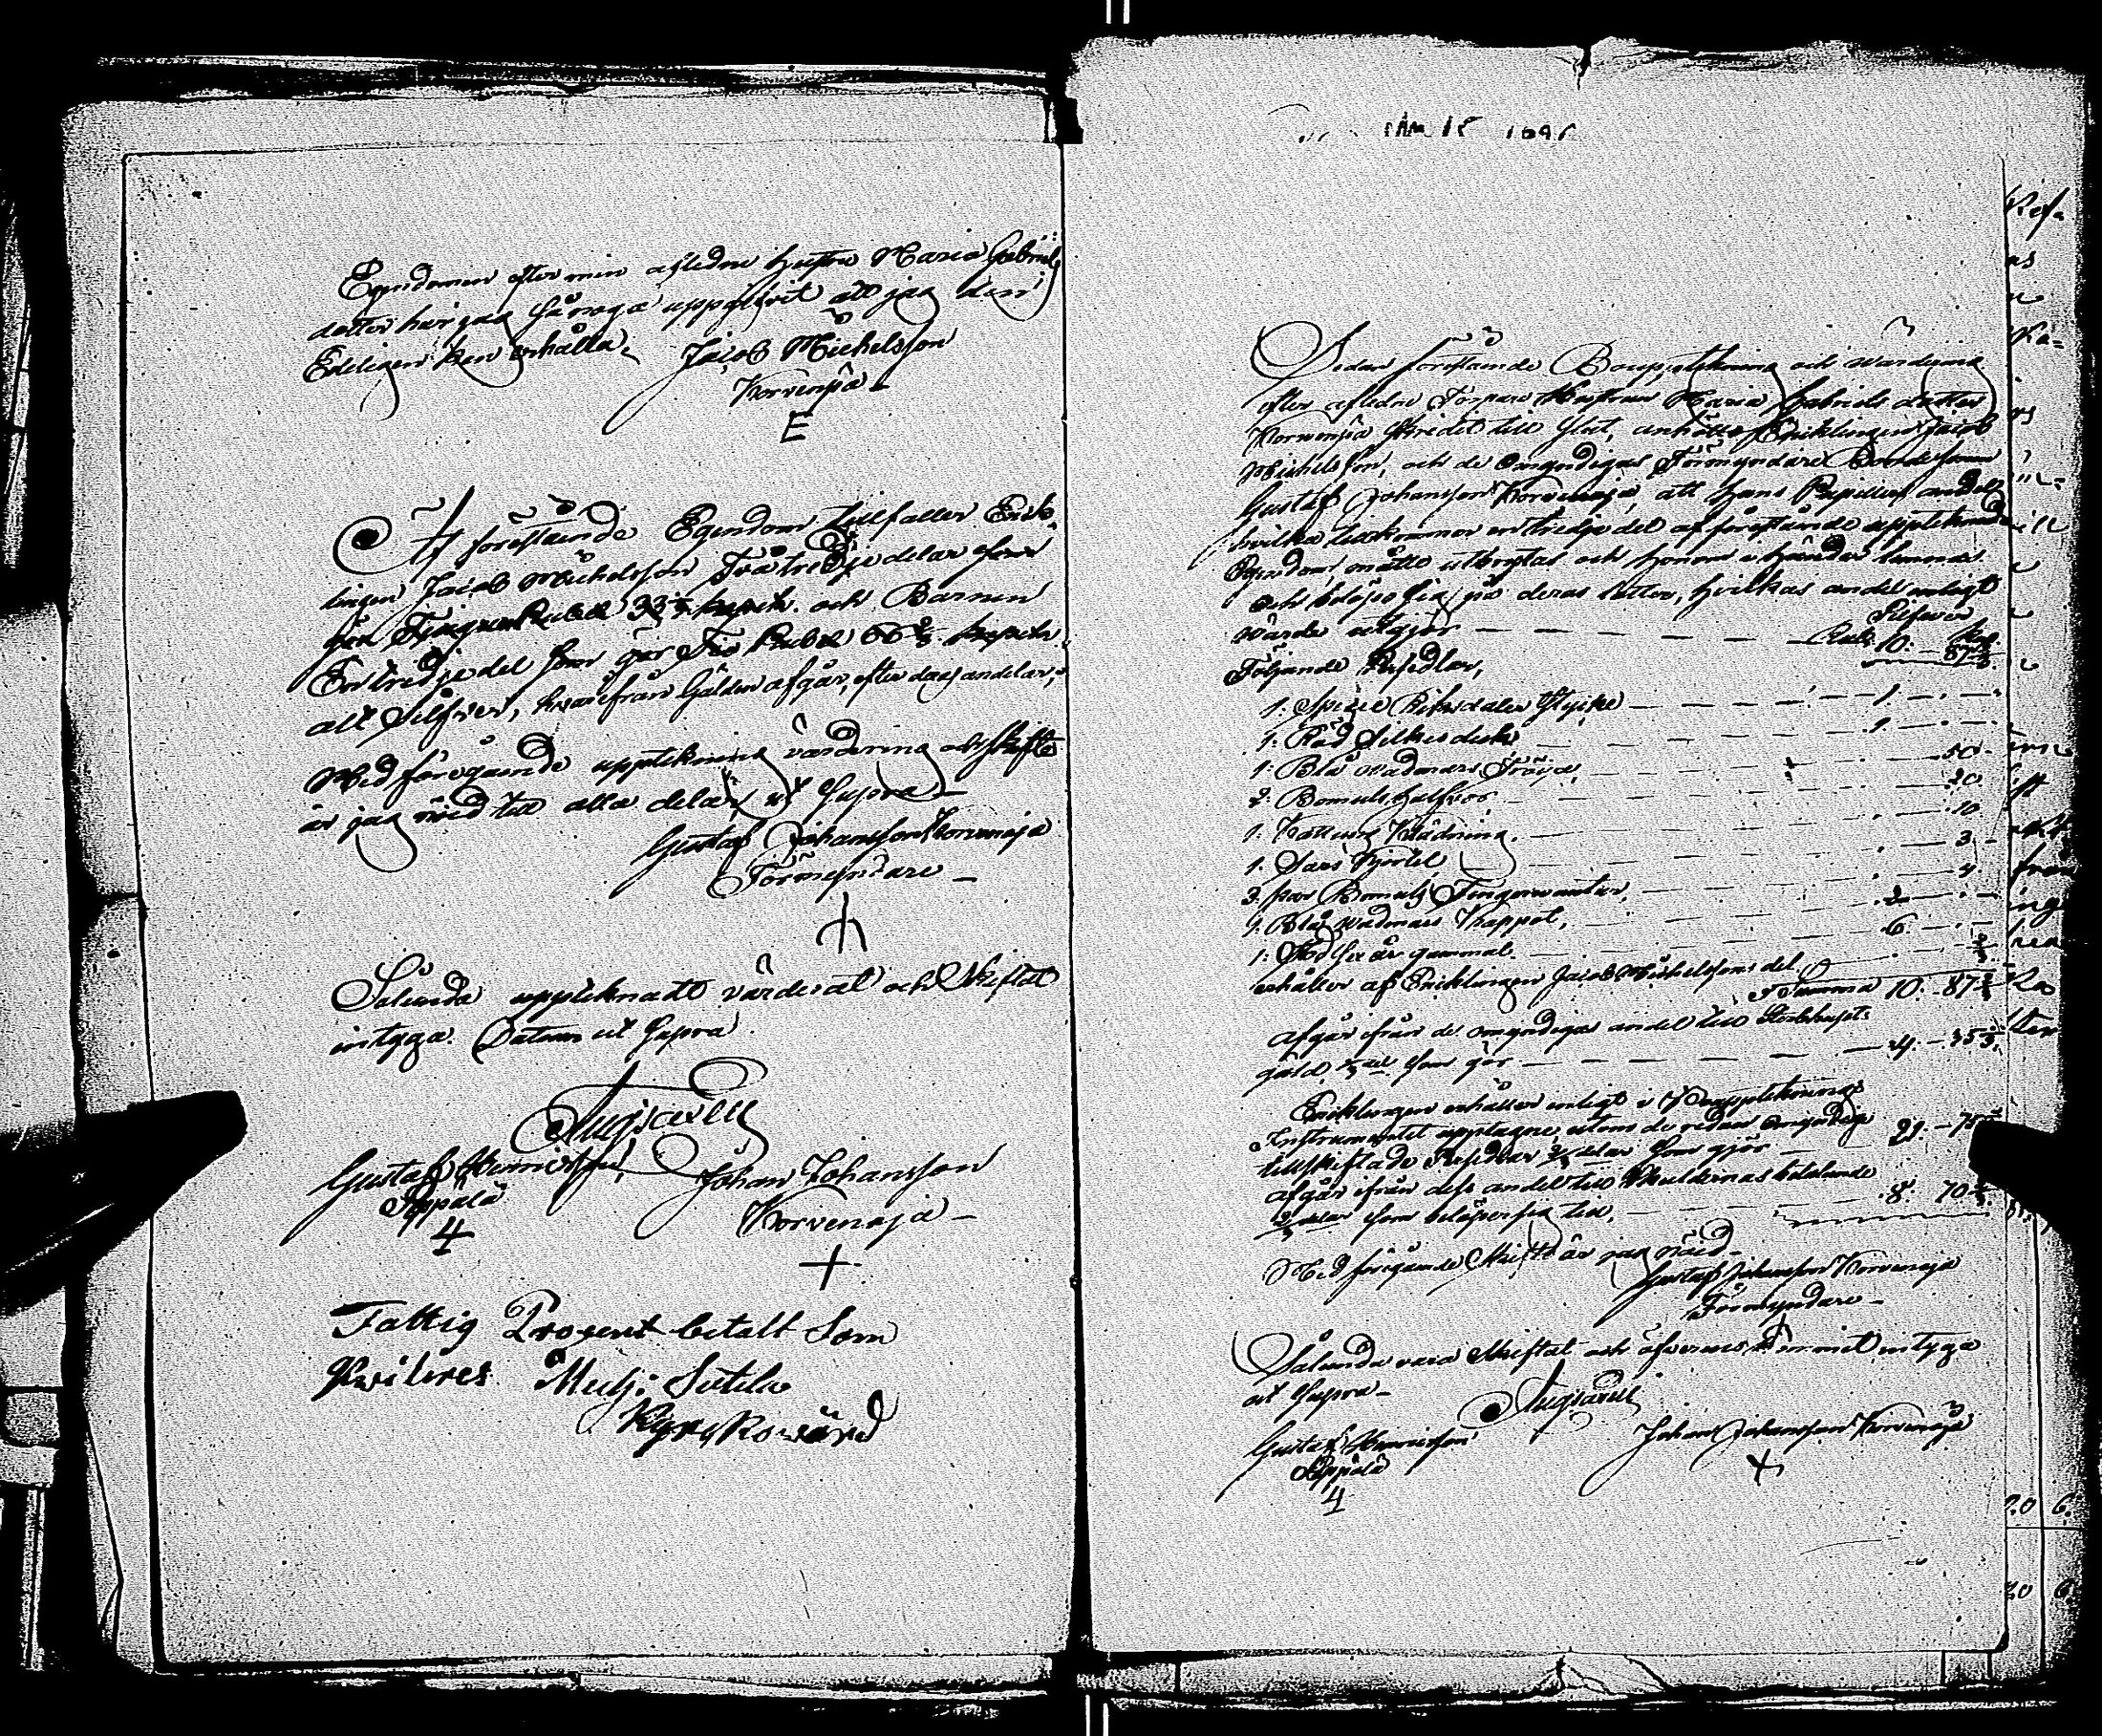 Egendomen efter min afledne hustru Maria Gabriels
dotter har jag så noga uppgifvit att jag den
Edeligen kan erhålla. Jacob Michelsson
Korvenpä
E
Af förestående Egendom tillfaller Enk-
lingen Jacob Michelsson Två tredje delar som
gör Tjugu en Rubel 33⅓ kopek och Barnen
En tredje del som gör Tio Rubel 66⅔ kopek
allt Silfver, hvarifrån Gälden afgår, efter deras andelar,
Med föregående uppteckning värdering och skifte
är jag nöjd till alla delar, ut Supra
Gustaf Johansson Korvenoja
Förmyndare
Sålunda upptecknadt värderat och Skiftat
intyga. Datum ut Supra
Gustaf Henriksson Johan Johansson
Seppälä Korvenoja
4 +
Fattig Procent betalt Som
Qviteres Mich: Sutela
Kyrckovärd
Sedan förestående Bouppteckning och värdering
efter afledne Torpare Hustrun Maria Gabriels dotter
Korvenpä skridit till slut, anhöllo Encklingen Jacob
Michelsson, och de Omyndigas Förmyndare Bondesonen
Gustaf Johansson Korvenoja, att hans Pupillers andel
hvilka tillkommer en tredje del af förestående upptecknade
Egendom måtte utbrytas och honom i händer lemnas
och belöpo sig på deras lotter, hvilkas andel enligt
Silfver
värde utgjör Rub. 10. 87
Följande Persedlar,
1. Specie Riksdaler Stycke 1.
1. Röd Silkes duk 1.
1. Blå Vadmars Tröja 50
2. Bomuls halfvor 20.
1. Kattuns Klädning. 10
1. Sars Kjortel 3
3. par Bomuls Fingervantar, 4
1. Blå Vadmars Kappot, 2
1. Sto Sex år gammal. 6.
erhåller af Encklingen Jacob Michelssons del ⅔
Summa 10. 87⅔
afgår ifrån de omyndigas andel till Sterbhusets
gäld, ⅓ del som gör 4. 35⅓
Encklingen erhåller enligt i Bouppteckning
Instrumentet upptagne, utom de redan Omyndige
tillskiftade Persedlar ⅔ delar som gjör 21. 75
afgår ifrån dess andel till Skuldernas betalande
⅔ delar som belöper sig till, 8. 70
Med föregående Skifte är jag nöjd
Gustaf Johansson Korvenoja
Förmyndare
Sålunda vara Skiftat och öfverens kommit intyga
ut Supra
Gustaf Henriksson Johan Johansson Korvenoja
Seppälä +
4